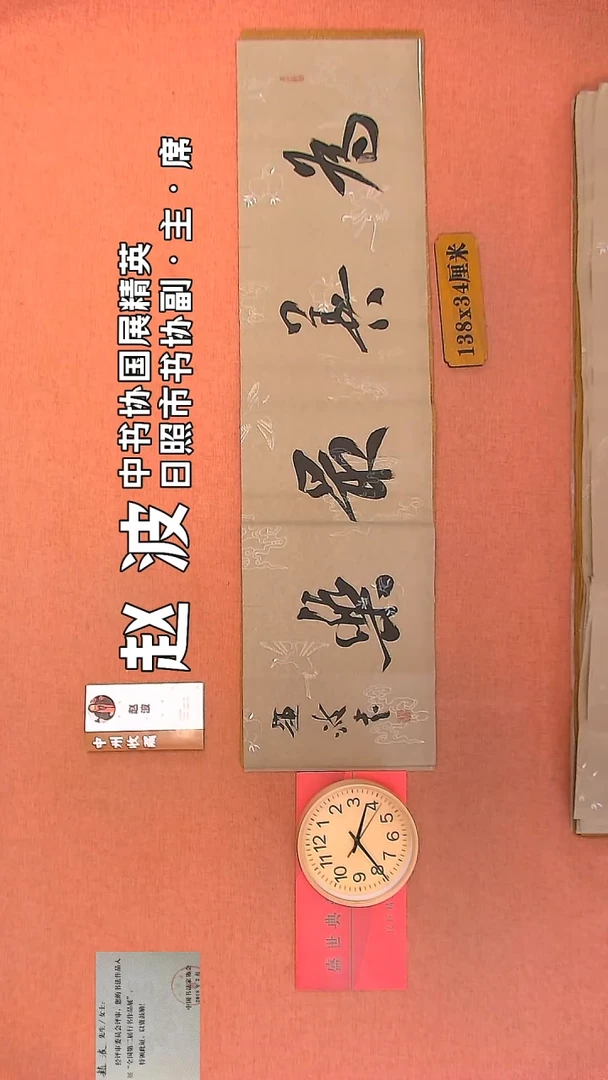 赵波
中书协国展精英
日照市书协副·主·席
为善最樂
波书
138x34厘米
赵波
中州收藏
盛世典
12
1
2
3
4
5
6
7
8
9
10
11
赵波 先生/女士：
经评审委员会评审，您的书法作品入
展“全国第二届行书作品展”，
特颁此证，以资鼓励！
中国书法家协会